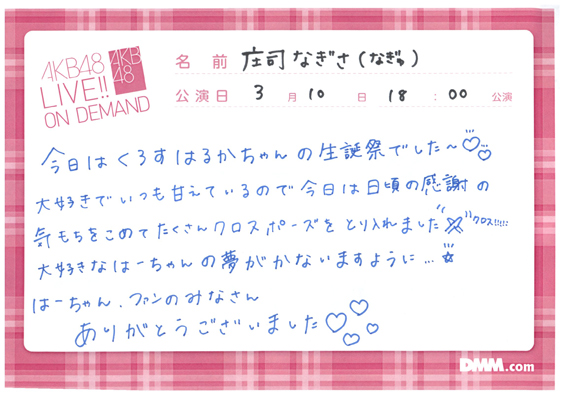 AKB48
LIVE!!
ON DEMAND
AKB
48
名前 庄司なぎさ(なぎゅ)
公演日 3月10日 18:00 公演
今日はくろすはるかちゃんの生誕祭でした〜♡♡
大好きでいつも甘えているので今日は日頃の感謝の
気もちをこめてたくさんクロスポーズをとり入れました クロス!!!!!
大好きなはーちゃんの夢がかないますように…☆
はーちゃん、ファンのみなさん
ありがとうございました♡♡♡♡
DMM.com